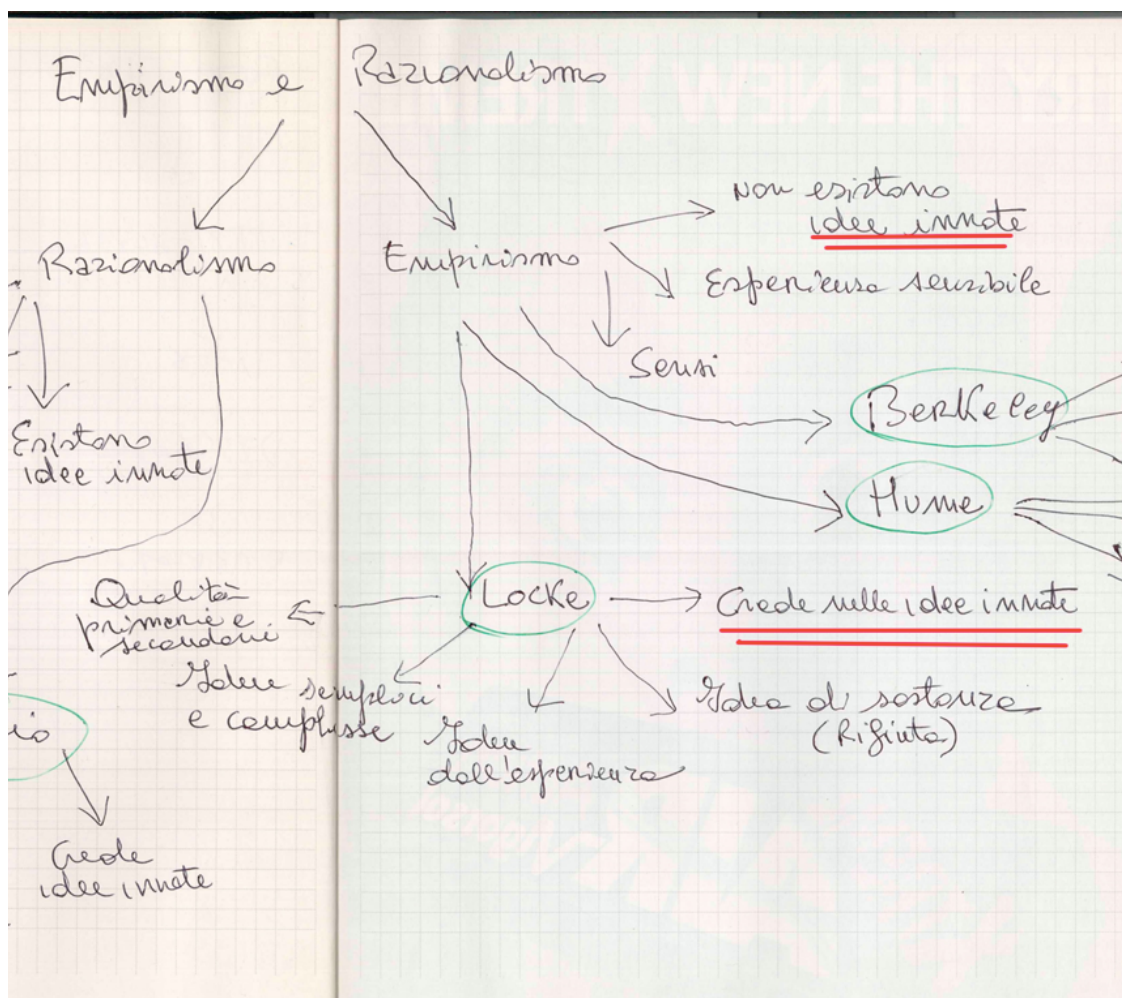 Empirismo e Razionalismo
Razionalismo
Esistono
idee innate
Empirismo
non esistono
idee innate
Esperienza sensibile
Sensi
Berkeley
Hume
Locke
Crede nelle idee innate
Qualità
primarie e
secondarie
Idee semplici
e complesse
Idee
dall'esperienza
Idea di sostanza
(Rifiuta)
io
Crede
idee innate